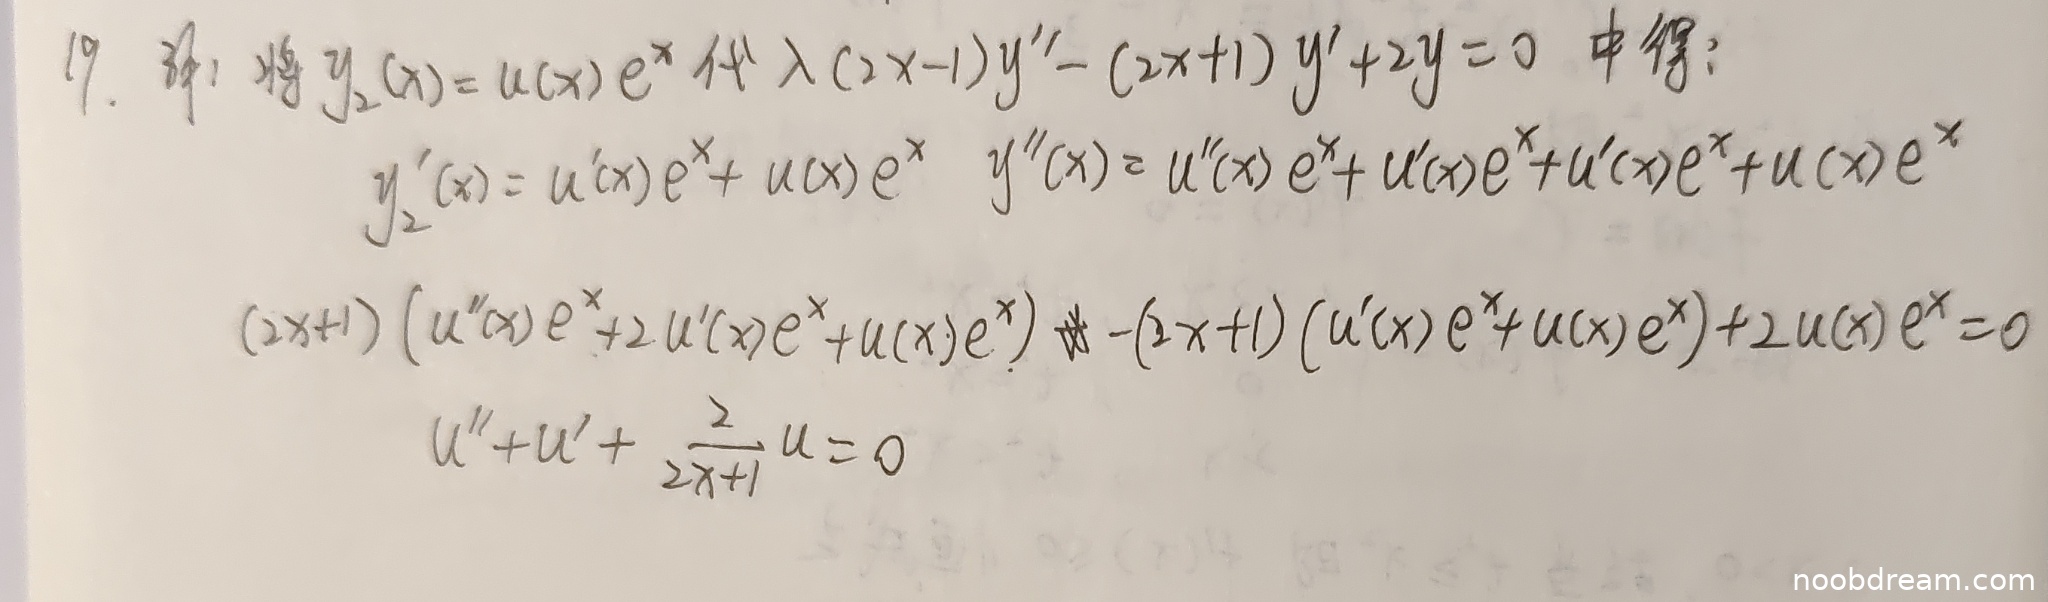 19. 解: 将 y₂(x)=u(x)eˣ 代入(2x-1)y''-(2x+1)y'+2y=0 中得:
y₂'(x)=u'(x)eˣ+u(x)eˣ y''(x)=u''(x)eˣ+u'(x)eˣ+u'(x)eˣ+u(x)eˣ
(2x+1)(u''(x)eˣ+2u'(x)eˣ+u(x)eˣ)-(2x+1)(u'(x)eˣ+u(x)eˣ)+2u(x)eˣ=0
u''+u'+2/(2x+1)u=0
noobdream.com